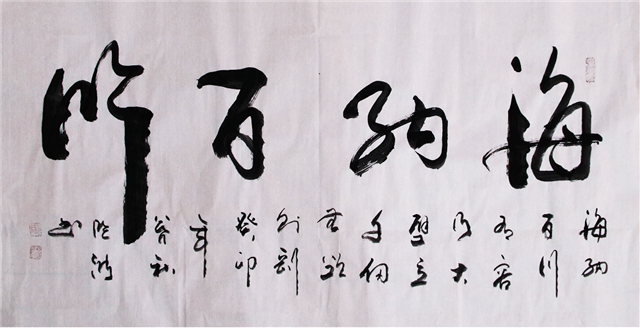 海纳百川
海纳
百川
有容
乃大
壁立
千仞
無欲
则刚
癸卯
年
书